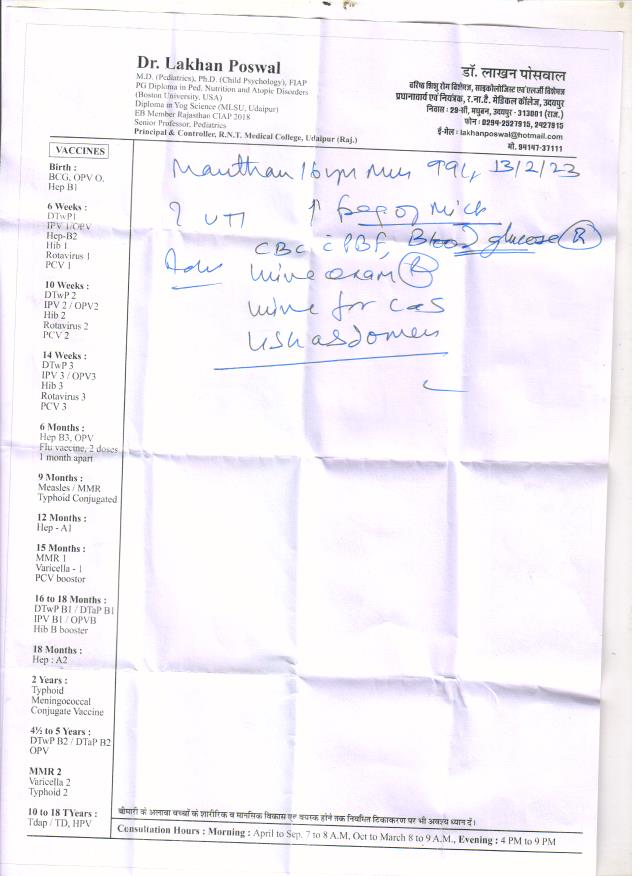 Dr. Lakhan Poswal
M.D. (Pediatrics), Ph.D. (Child Psychology), FIAP
PG Diploma in Ped. Nutrition and Atopic Disorders
(Boston University, USA)
Diploma in Yog Science (MLSU, Udaipur)
EB Member Rajasthan CIAP 2018
Senior Professor, Pediatrics
Principal & Controller, R.N.T. Medical College, Udaipur (Raj.)
डॉ. लाखन पोसवाल
वरिष्ठ शिशु रोग विशेषज्ञ, साइकोलोजिस्ट एवं एलर्जी विशेषज्ञ
प्रधानाचार्य एवं नियंत्रक, र.ना.टै. मेडिकल कॉलेज, उदयपुर
निवास : 29-सी, मधुबन, उदयपुर - 313001 (राज.)
फोन : 0294-2527915, 2427915
ई-मेल : lakhanposwal@hotmail.com
मो. 94147-37111
Manthan 16 yr 13/2/23
? UTI ↑ freq of mict
Adv CBC c PBF, Blood glucose (R)
urine exam (R)
urine for C&S
USG abdomen
VACCINES
Birth :
BCG, OPV O,
Hep B1
6 Weeks :
DTwP1
IPV 1/OPV
Hep-B2
Hib 1
Rotavirus 1
PCV 1
10 Weeks :
DTwP 2
IPV 2 / OPV2
Hib 2
Rotavirus 2
PCV 2
14 Weeks :
DTwP 3
IPV 3 / OPV3
Hib 3
Rotavirus 3
PCV 3
6 Months :
Hep B3, OPV
Flu vaccine, 2 doses
1 month apart
9 Months :
Measles / MMR
Typhoid Conjugated
12 Months :
Hep - A1
15 Months :
MMR 1
Varicella - 1
PCV boostor
16 to 18 Months :
DTwP B1 / DTaP B1
IPV B1 / OPVB
Hib B booster
18 Months :
Hep : A2
2 Years :
Typhoid
Meningococcal
Conjugate Vaccine
4½ to 5 Years :
DTwP B2 / DTaP B2
OPV
MMR 2
Varicella 2
Typhoid 2
10 to 18 TYears :
Tdap / TD, HPV
बीमारी के अलावा बच्चों के शारीरिक व मानसिक विकास एवं वयस्क होने तक नियमित टिकाकरण पर भी अवश्य ध्यान दें।
Consultation Hours : Morning : April to Sep. 7 to 8 A.M, Oct to March 8 to 9 A.M., Evening : 4 PM to 9 PM